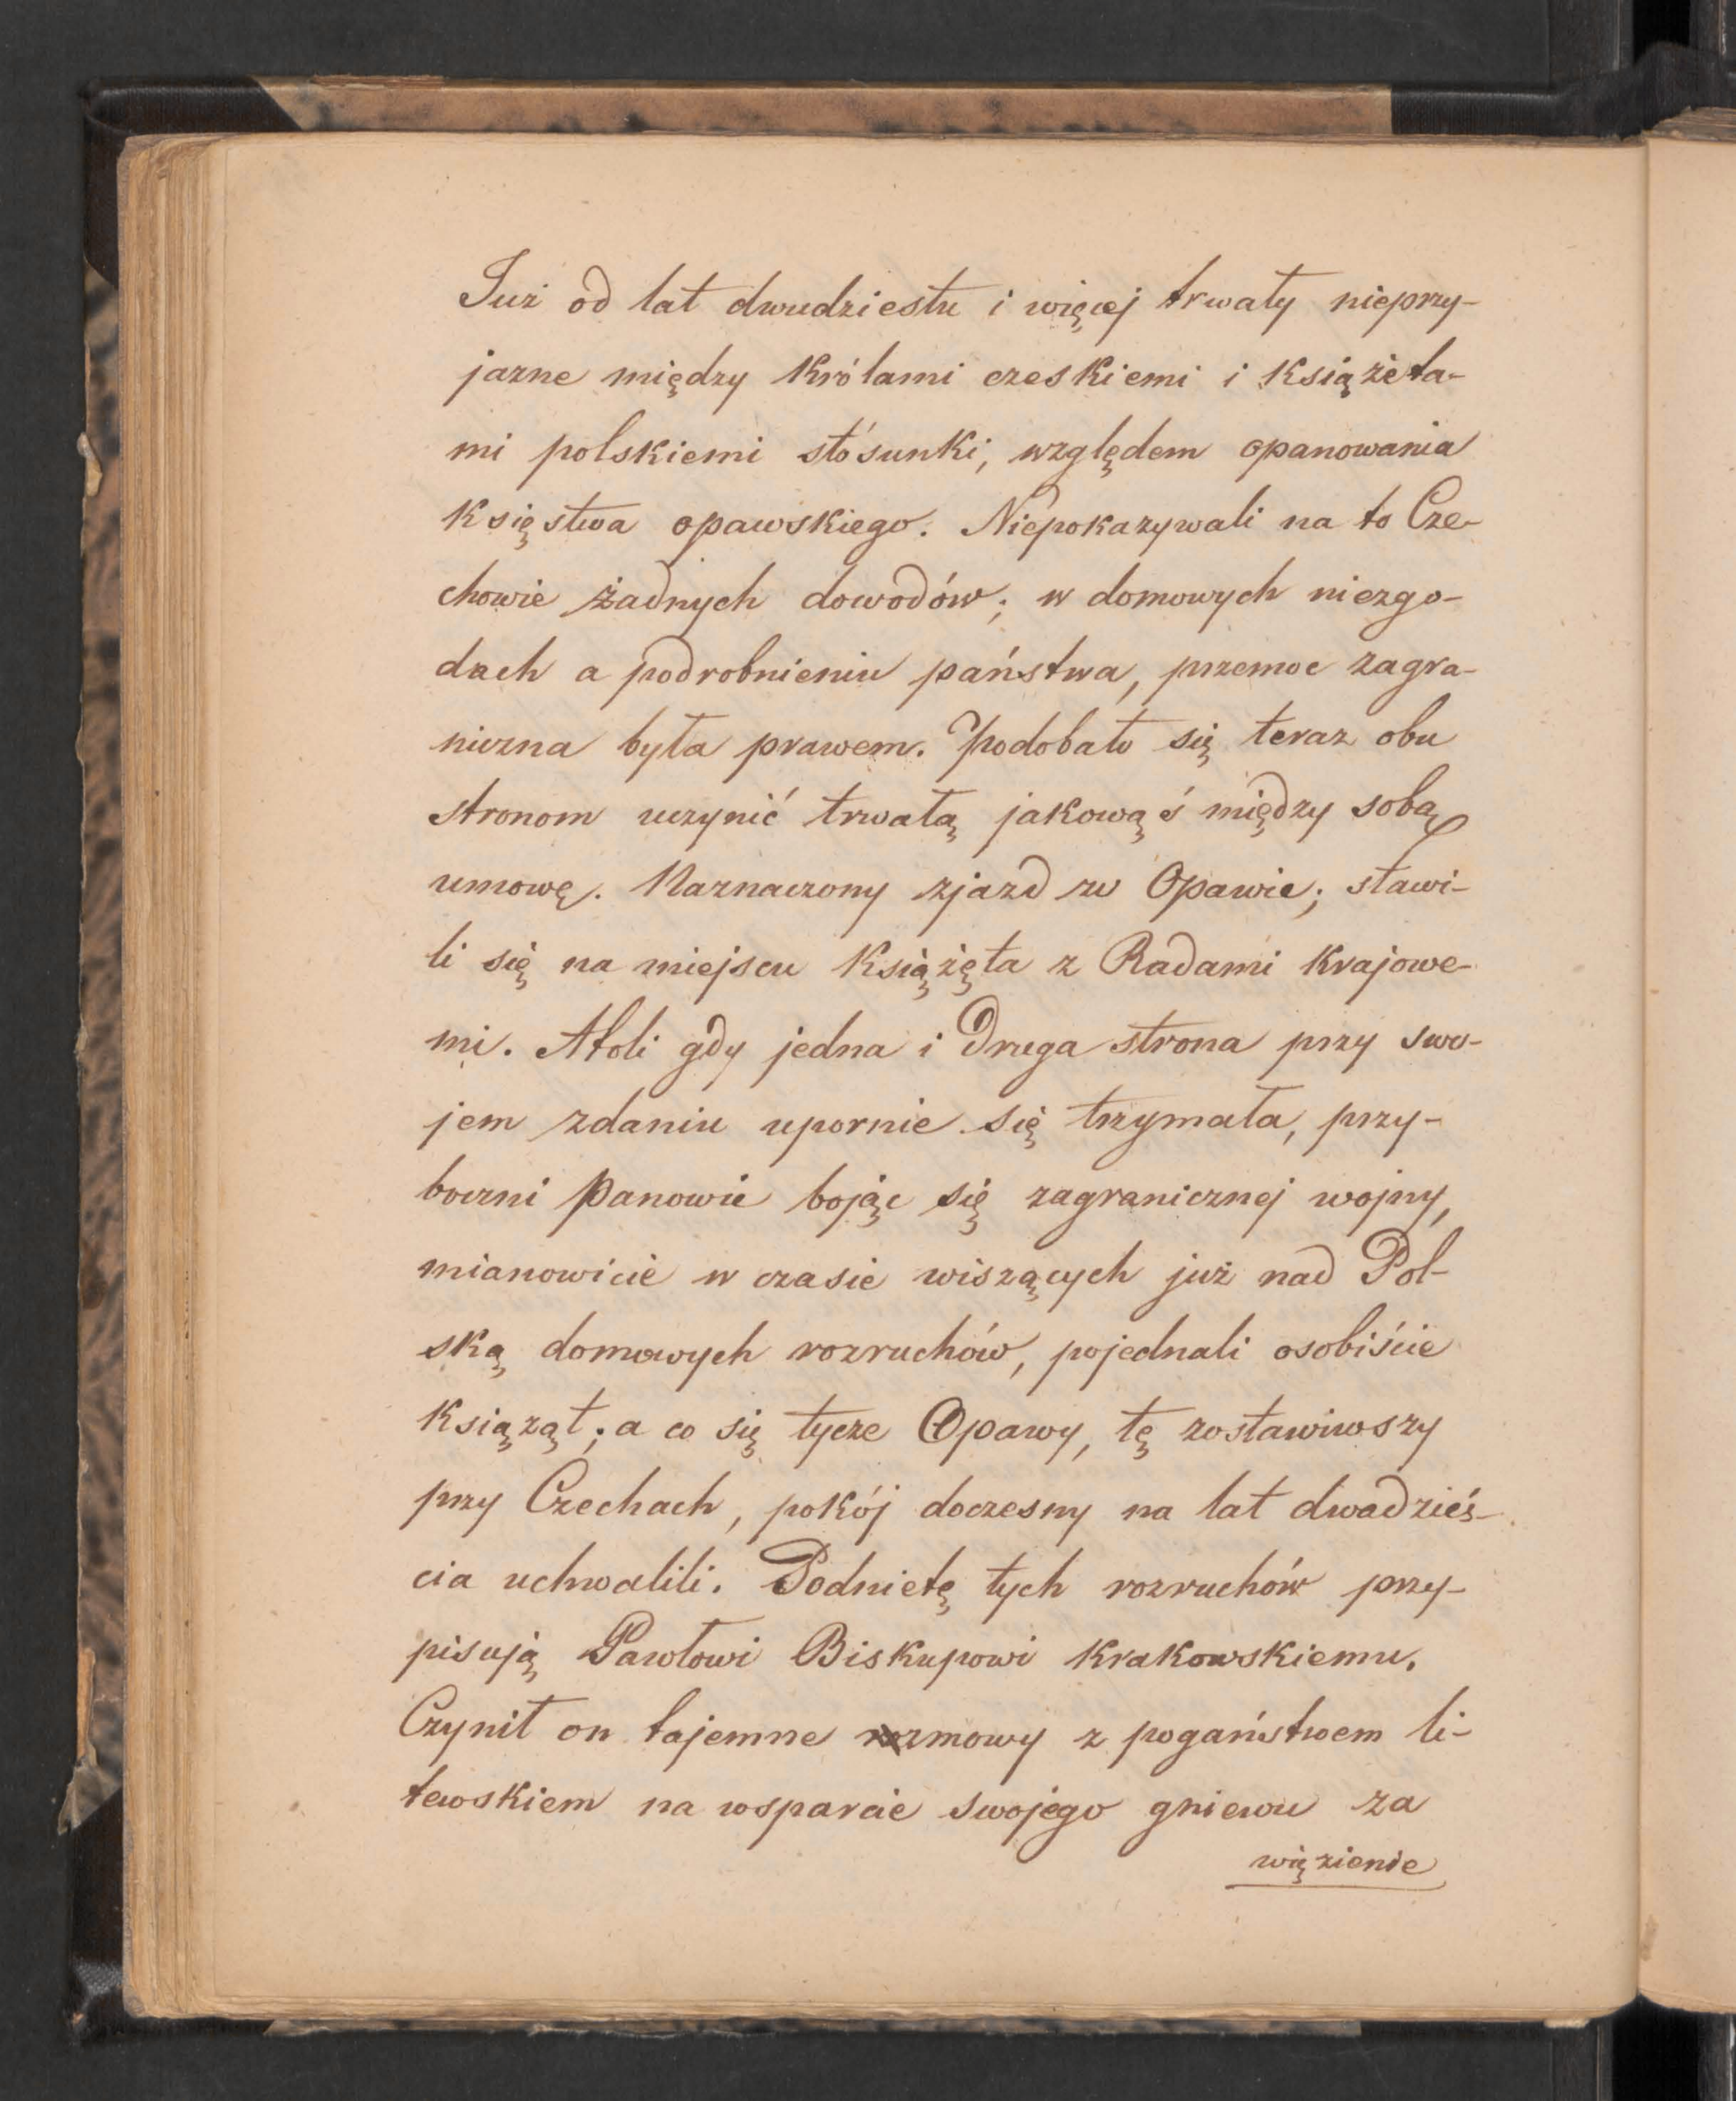 Już od lat dwudziestu i więcej trwały nieprzy-
jazne między Królami czeskiemi i Książęta-
mi polskiemi stósunki, względem opanowania
Księstwa opawskiego. Niepokazywali na to Cze-
chowie żadnych dowodów; w domowych niezgo-
dach a podrobnieniu państwa, przemoc zagra-
niczna była prawem. Podobało się teraz obu
stronom uczynić trwałą jakowąś między sobą
umowę. Naznaczony zjazd w Opawie; stawi-
li się na miejscu Książęta z Radami Krajowe-
mi. Atoli gdy jedna i druga strona przy swo-
jem zdaniu upornie się trzymała, przy-
boczni Panowie bojąc się zagranicznej wojny,
mianowicie w czasie wiszących już nad Pol-
ską domowych rozruchów, pojednali osobiście
Książąt; a co się tycze Opawy, tę zostawiwszy
przy Czechach, pokój doczesny na lat dwadzieś-
cia uchwalili. Podnietę tych rozruchów przy-
pisują Pawłowi Biskupowi Krakowskiemu.
Czynił on tajemne rozmowy z pogaństwem li-
tewskiem na wsparcie swojego gniewu za
więzienie